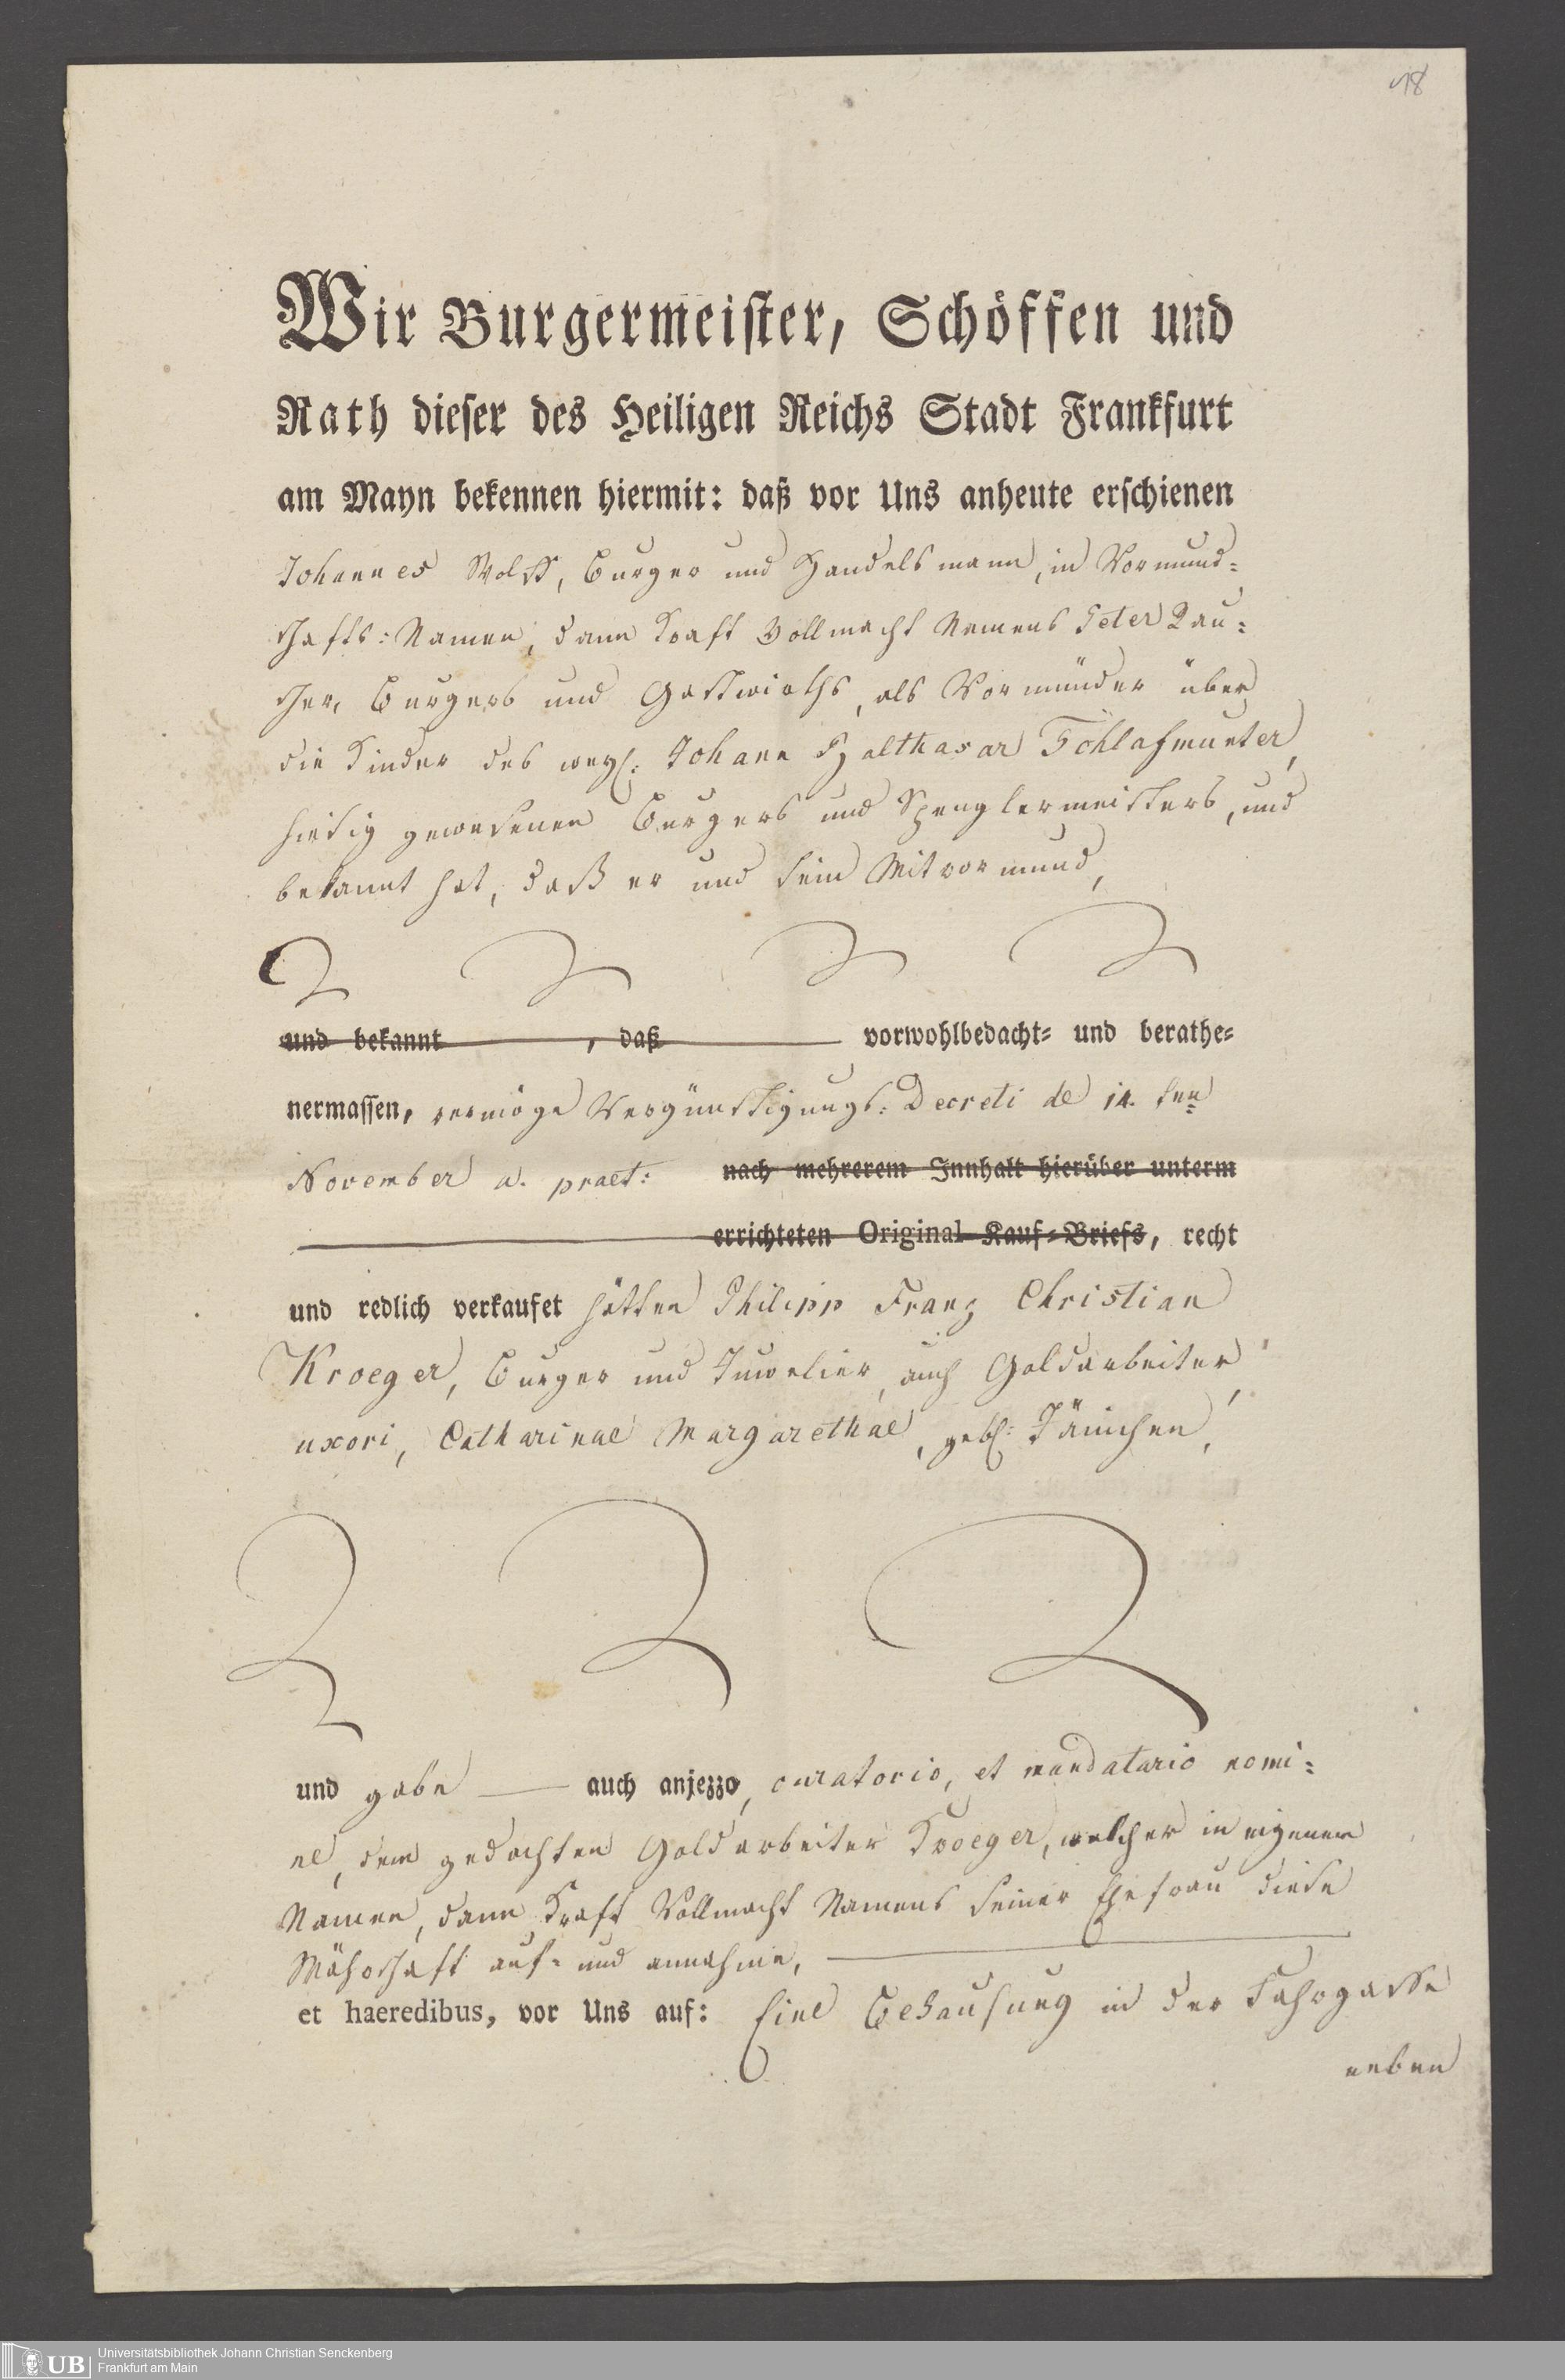 18
Wir Burgermeister, Schöffen und
Rath dieser des Heiligen Reichs Stadt Frankfurt
am Mayn bekennen hiermit: daß vor Uns anheute erschienen
Johannes Wolff, Burger und Handelsmann, in Vormund=
schafts=Namen, dann Kraft Vollmacht Namens Peter Rau=
scher, Burgers und Gastwirths, als Vormünder über
die Kinder des weyl: Johann Balthasar
hiesig gewesenen Burgers und Spenglermeisters, und
bekannt hat, daß er und sein Mitvormund,
und bekannt , daß vorwohlbedacht= und berathe=
nermassen, vermöge Vergünstigungs=Decreti de 14. ten
November a. praet: nach mehrerem Innhalt hierüber unterm
errichteten Original Kauf=Briefs, recht
und redlich verkaufet hätten Philipp Franz Christian
Kroeger, Burger und Juwelier, auch Goldarbeiter,
uxori, Catharinae Margarethae, gebl: Jänichen,
und gabe auch anjezzo, curatorio, et mandatario nomi=
ne, dem gedachten Goldarbeiter Kroeger, welcher in eigenem
Namen, dann Kraft Vollmacht Namens seiner Ehefrau diese
Währschaft auf= und annahme,
et haeredibus, vor Uns auf: Eine Behausung in der Fahrgasse
neben
UB Universitätsbibliothek Johann Christian Senckenberg
Frankfurt am Main